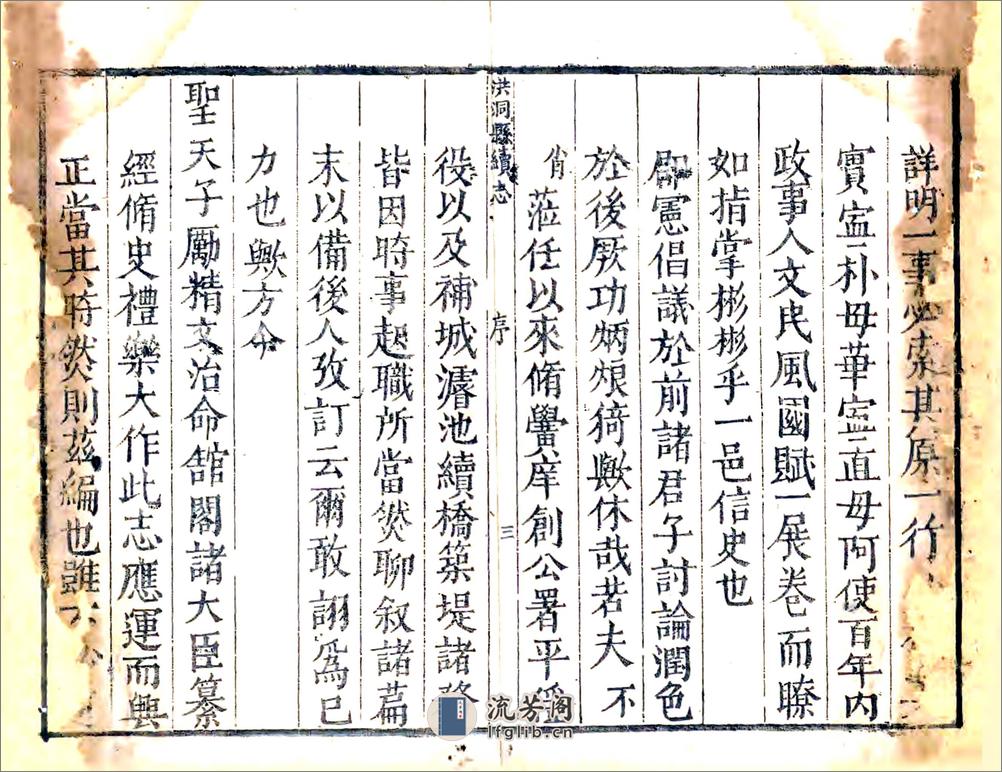 詳明一事必索其原一行
實寍朴毋華寍直毋阿使百年内
政事人文民風國賦一展卷而瞭
如指掌彬彬乎一邑信史也
郡憲倡議於前諸君子討論潤色
於後厥功炳烺猗歟休哉若夫不
肖蒞任以來脩黌庠創公署平
洪洞縣續志
序
三
役以及補城濬池續橋築堤諸務
皆因時事起職所當然聊叙諸篇
末以備後人攷訂云爾敢詡爲已
力也歟方今
聖天子勵精文治命舘閣諸大臣纂
經脩史禮樂大作此志應運而興
正當其時然則兹編也雖
流芳阁
lfglib.cn